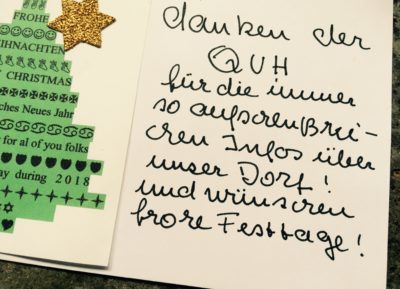 FROHE
EIHNACHTEN
CHRISTMAS
ches Neues Jahr
for all of you folks
ay during 2018
danken der
QUH
für die immer
so aufschlußrei-
chen Infos über
unser Dorf!
und wünschen
frohe Festtage!